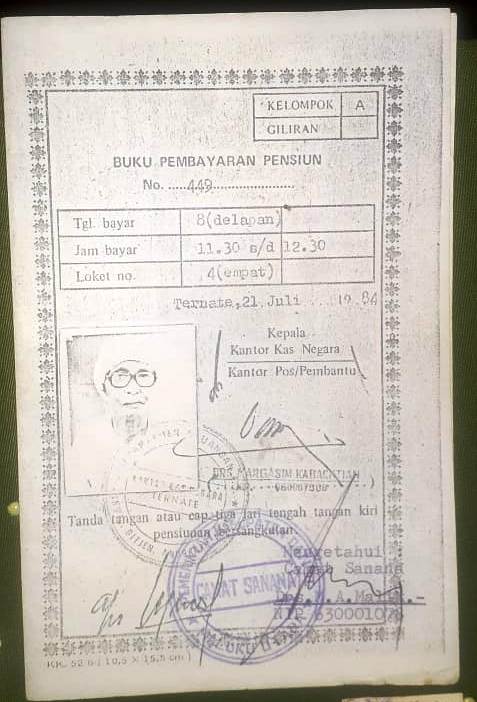 KELOMPOK A
GILIRAN
BUKU PEMBAYARAN PENSIUN
No. ......449......................
Tgl. bayar 8(delapan)
Jam bayar 11.30 s/d 12.30
Loket no. 4(empat)
Ternate,21 Juli ....19 84
Kepala
Kantor Kas Negara
Kantor Pos/Pembantu
DRS. MARGASIM
TERNATE
Tanda tangan atau cap tiga jari tengah tangan kiri
pensiunan bersangkutan.
Mengetahui
Camat Sanana
CAMAT SANANA
MALUKU
KK. 52 b ( 10,5 X 15,5 cm )